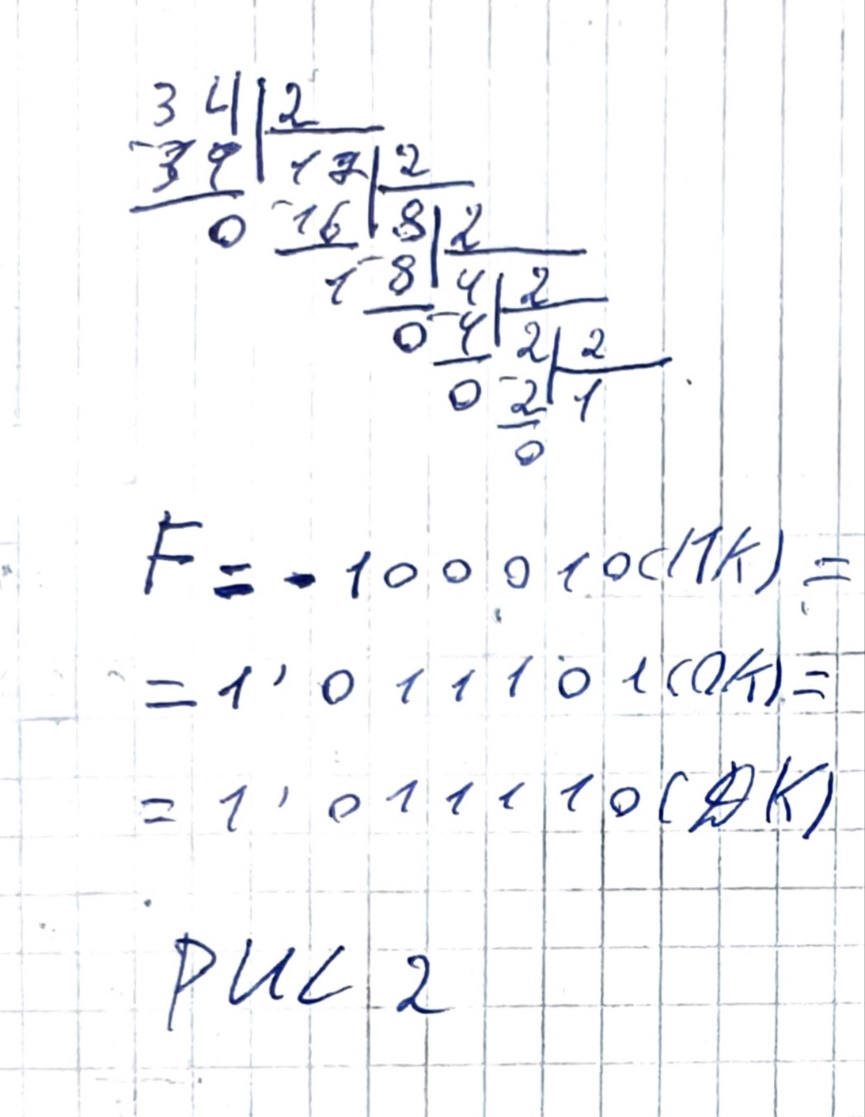 34 2
-34 17 2
0 -16 8 2
1 -8 4 2
0 -4 2 2
0 -2 1
0
F = -100010(ПК) =
= 1'011101(ОК) =
= 1'011110(ДК)
РИС 2